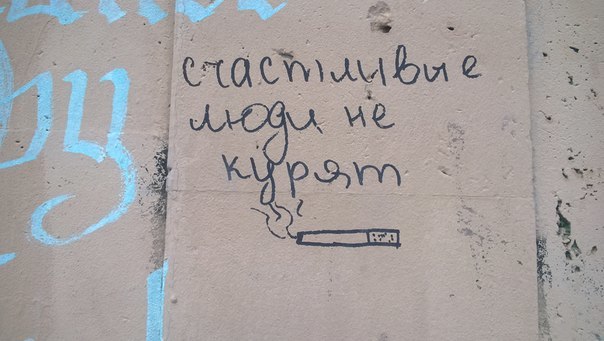 счастливые
люди не
курят